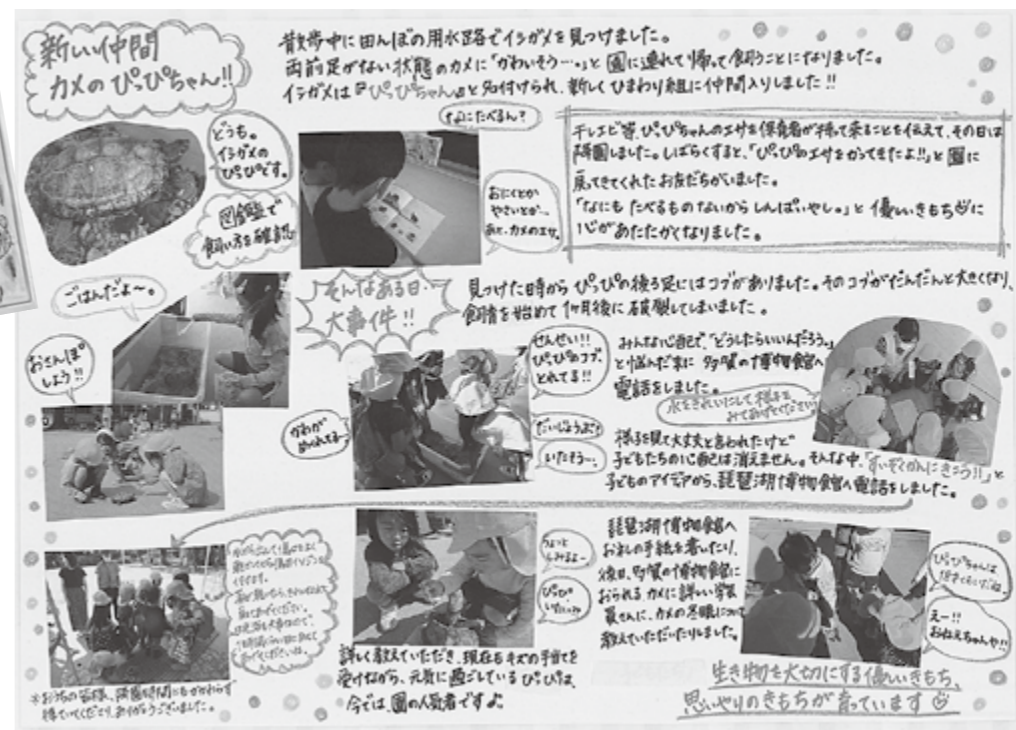 新しい仲間
カメのぴっぴちゃん!!
散歩中に田んぼの用水路でイシガメを見つけました。
両前足がない状態のカメに「かわいそう…。」と園に連れて帰って飼うことになりました。
イシガメは『ぴっぴちゃん』と名付けられ、新しくひまわり組に仲間入りしました!!
なにたべるん?
どうも。
イシガメの
ぴっぴです。
図鑑で
飼い方を確認
おにくとか
やさいとか…
あと、カメのエサ。
干しエビ等、ぴっぴちゃんのエサを保育者が持って来ることを伝えて、その日は
降園しました。しばらくすると、「ぴっぴのエサをかってきたよ!!」と園に
戻ってきてくれたお友だちがいました。
「なにもたべるものないからしんぱいやし。」と優しいきもちに
心があたたかくなりました。
ごはんだよ〜。
おさんぽ
しよう!!
そんなある日…
大事件!!
見つけた時からぴっぴの後ろ足にはコブがありました。そのコブがだんだんと大きくなり、
飼育を始めて1ヶ月後に破裂してしまいました。
せんせい!!
ぴっぴのコブ、
とれてる!!
かわが
めくれてる…
だいじょうぶ?
いたそう…。
みんな心配で、「どうしたらいいんだろう。」
と悩んだ末に多賀の博物館へ
電話をしました。
水をきれいにして様子を
みてあげてください
様子を見て大丈夫と言われたけど
子どもたちの心配は消えません。そんな中、「すいぞくかんにきこう!!」と
子どものアイデアから、琵琶湖博物館へ電話をしました。
ちょっと
しみるよ〜
ぴっぴ
詳しく教えていただき、現在もキズの手当てを
受けながら、元気に過ごしているぴっぴは、
今では、園の人気者です♪
琵琶湖博物館へ
お礼の手紙を書いたり、
後日、多賀の博物館に
おられるカメに詳しい学芸
員さんに、カメの冬眠について
教えていただいたりしました。
ぴっぴちゃんは
えー!!
おねえちゃんや!!
生き物を大切にする優しいきもち、
思いやりのきもちが育っています
※おうちの皆様、降園時間にもかかわらず
待っていてくださり、ありがとうございました。